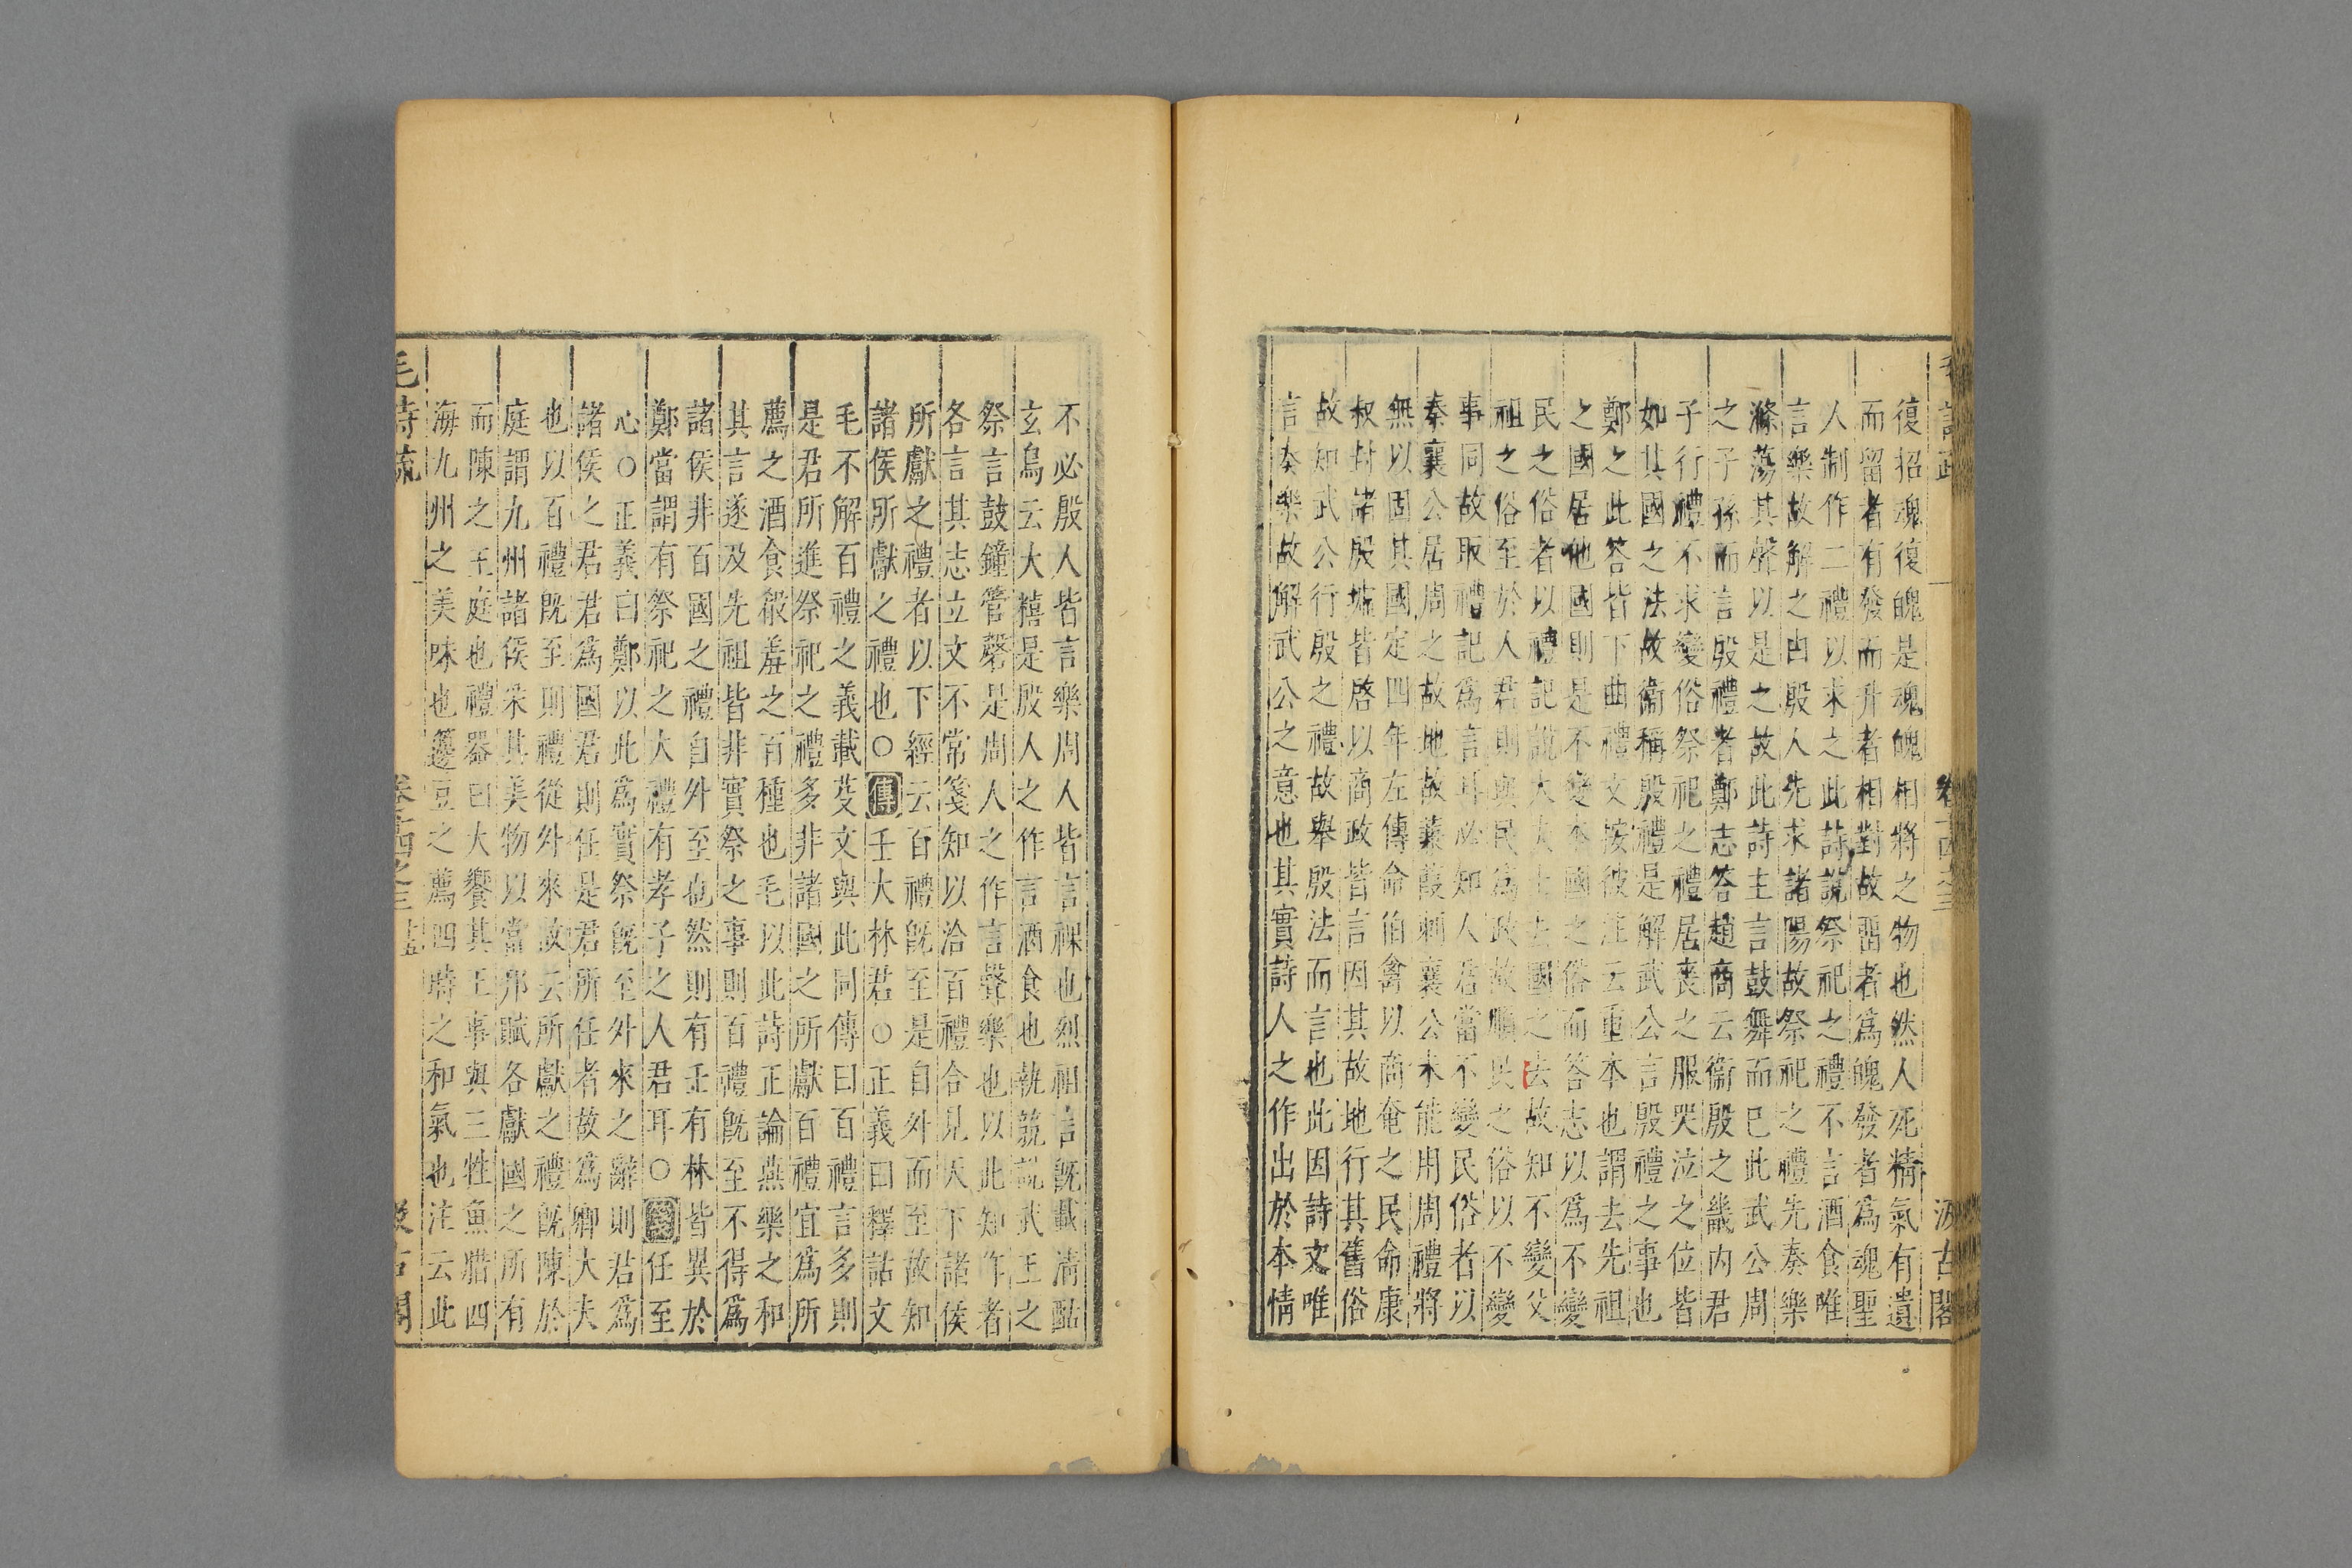 復招魂復魄是魂魄相將之物也然人死精氣有遺
而留者有發而升者相對故留者爲魄發者爲魂聖
人制作二禮以求之此詩說祭祀之禮不言酒食唯
言樂故解之由殷人先求諸陽故祭祀之禮先奏樂
滌蕩其聲以是之故此詩主言鼓舞而已此武公周
之子孫而言殷禮者鄭志答趙商云衞殷之畿内君
子行禮不求變俗祭祀之禮居喪之服哭泣之位皆
如其國之法故衞稱殷禮是解武公言殷禮之事也
鄭之此答皆下曲禮文按彼注云重本也謂去先祖
之國居他國則是不變本國之俗而答志以爲不變
民之俗者以禮記說大夫士去國之法故知不變父
祖之俗至於人君則與民爲政故順民之俗以不變
事同故取禮記爲言耳必知人君當不變民俗者以
秦襄公居周之故地故蒹葭刺襄公未能用周禮將
無以固其國定四年左傳命伯禽以商奄之民命康
叔封諸殷墟皆啓以商政皆言因其故地行其舊俗
故知武公行殷之禮故舉殷法而言也此因詩文唯
言奏樂故解武公之意也其實詩人之作出於本情
汲古閣
不必殷人皆言樂周人皆言祼也烈祖言旣載清酤
玄鳥云大糦是殷人之作言酒食也執競說武王之
祭言鼓鐘管磬是周人之作言聲樂也以此知作者
各言其志立文不常箋知以洽百禮合見天下諸侯
所獻之禮者以下經云百禮旣至是自外而至故知
諸侯所獻之禮也○傳壬大林君○正義曰釋詁文
毛不解百禮之義載芟文與此同傳曰百禮言多則
是君所進祭祀之禮多非諸國之所獻百禮宜爲所
薦之酒食殽羞之百種也毛以此詩正論燕樂之和
其言遂及先祖皆非實祭之事則百禮旣至不得爲
諸侯非百國之禮自外至也然則有壬有林皆異於
鄭當謂有祭祀之大禮有孝子之人君耳○箋任至
心○正義曰鄭以此爲實祭旣至外來之辭則君爲
諸侯之君君爲國君則任是君所任者故爲卿大夫
也以百禮旣至則禮從外來故云所獻之禮旣陳於
庭謂九州諸侯采其美物以當邦賦各獻國之所有
而陳之王庭也禮器曰大饗其王事與三牲魚腊四
海九州之美味也籩豆之薦四時之和氣也注云此
毛詩疏